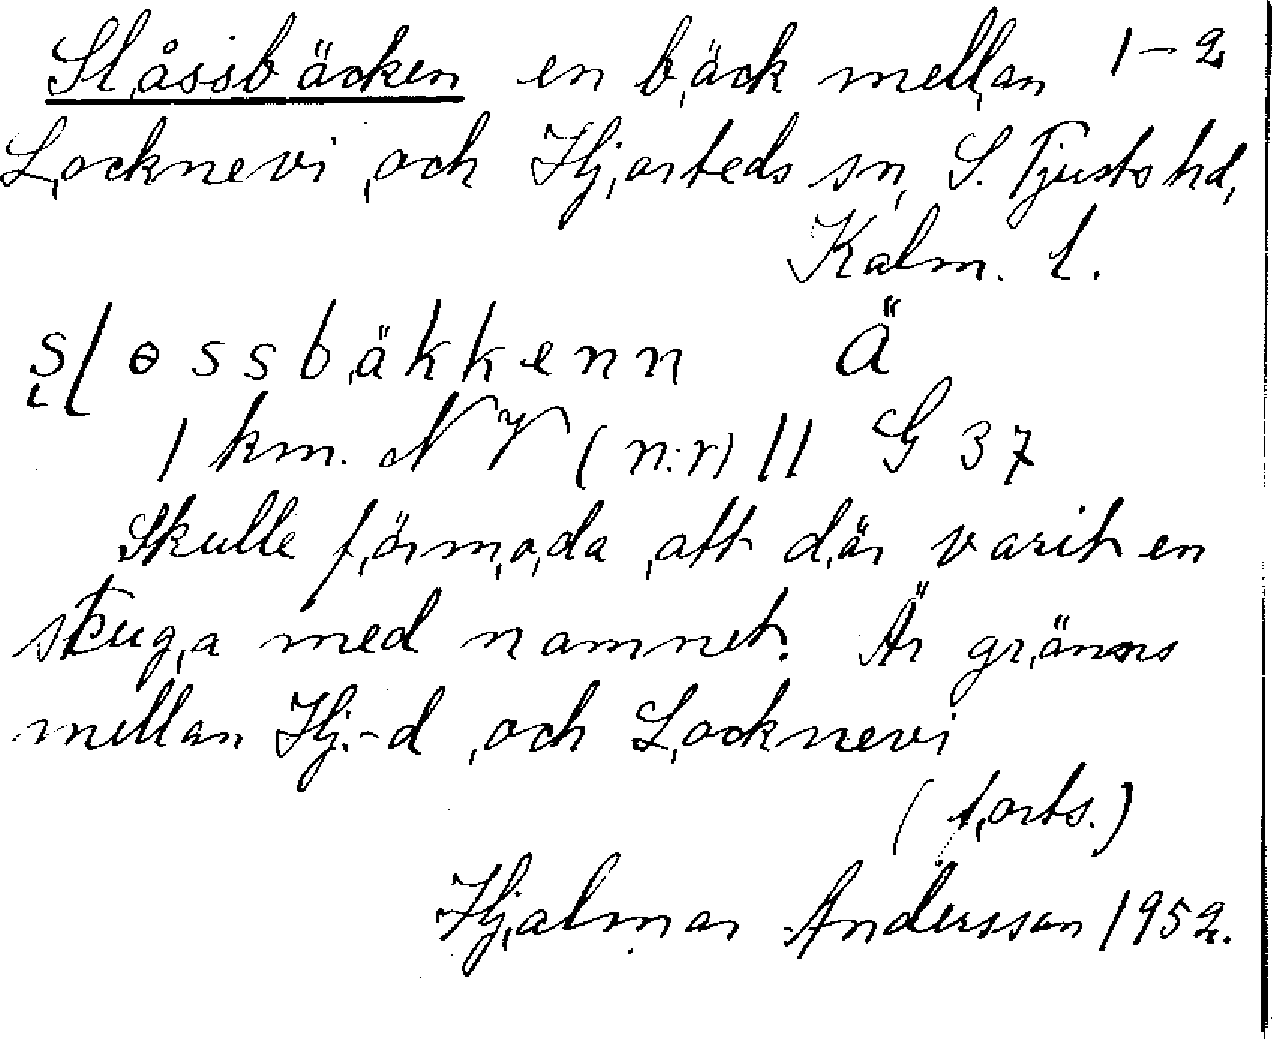 Slåssbäcken en bäck mellan 1-2
Locknevi och Hjorteds sn, S. Tjusts hd,
Kalm. l.
slossbäkkenn Ä
1 km. NV (n:r) 11 G 37
Skulle förmoda att där varit en
stuga med namnet. Är gräns
mellan Hj.-d och Locknevi
(forts.)
Hjalmar Andersson 1952.